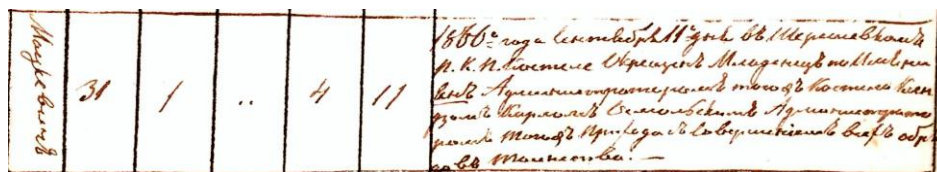 Мацкевичъ
31 1 .. 4 11
1860го года Сентября 11го дня въ Шерешевскомъ
Р. К. П. Костеле Окрещенъ Младенецъ по Имени
Администраторомъ того жъ Костела Ксен
дзомъ Карломъ Администрато
ромъ того жъ Прихода съ Совершеніемъ всехъ обря
довъ таинства. —